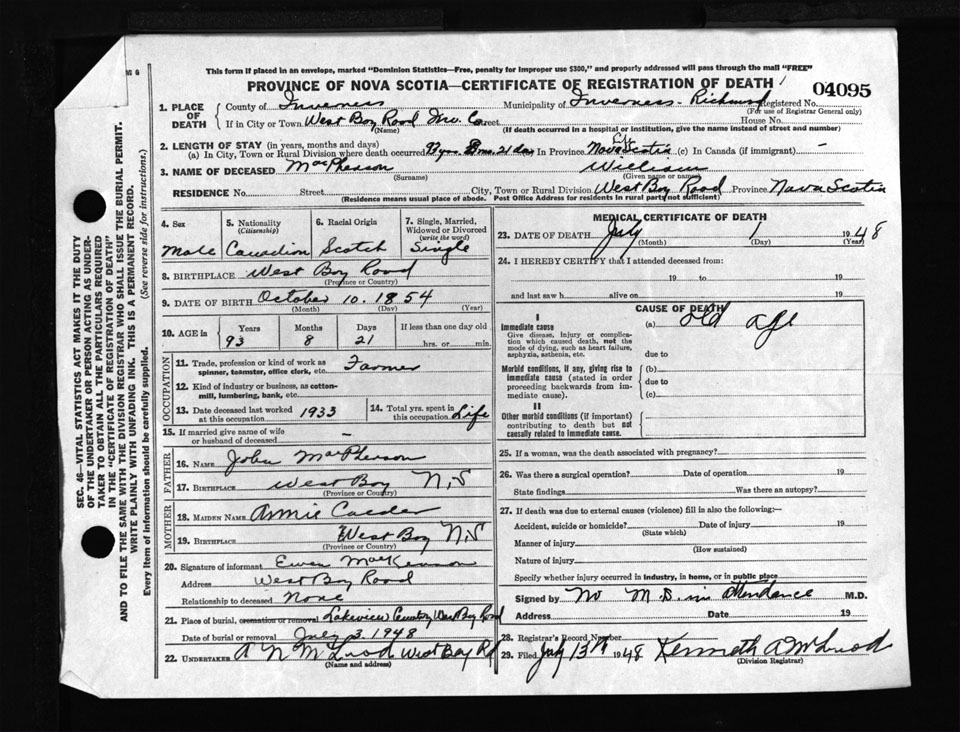 This form if placed in an envelope, marked "Dominion Statistics—Free, penalty for improper use $300," and properly addressed will pass through the mail "FREE"
PROVINCE OF NOVA SCOTIA—CERTIFICATE OF REGISTRATION OF DEATH
04095
1. PLACE OF DEATH
County of Inverness Municipality of Inverness-Richmond Registered No.
(For use of Registrar General only)
If in City or Town West Bay Road Inv. Co. Street House No.
(Name) (If death occurred in a hospital or institution, give the name instead of street and number)
2. LENGTH OF STAY (in years, months and days)
(a) In City, Town or Rural Division where death occurred 93 yrs 8 mo. 21 da In Province Nova Scotia (c) In Canada (if immigrant) —
Life
3. NAME OF DECEASED MacPherson William
(Surname) (Given name or names)
RESIDENCE No. Street City, Town or Rural Division West Bay Road Province Nova Scotia
(Residence means usual place of abode. Post Office Address for residents in rural parts not sufficient)
4. Sex
Male
5. Nationality
(Citizenship)
Canadian
6. Racial Origin
Scotch
7. Single, Married, Widowed or Divorced
(write the word)
Single
8. BIRTHPLACE West Bay Road
(Province or Country)
9. DATE OF BIRTH October 10. 1854
(Month) (Day) (Year)
10. AGE in Years Months Days If less than one day old
93 8 21 hrs. or min.
OCCUPATION
11. Trade, profession or kind of work as
spinner, teamster, office clerk, etc. Farmer
12. Kind of industry or business, as cotton-
mill, lumbering, bank, etc.
13. Date deceased last worked
at this occupation 1933
14. Total yrs. spent in
this occupation Life
15. If married give name of wife
or husband of deceased —
FATHER
16. NAME John MacPherson
17. BIRTHPLACE West Bay N,S
(Province or Country)
MOTHER
18. MAIDEN NAME Annie Calder
19. BIRTHPLACE West Bay N,S
(Province or Country)
20. Signature of informant Ewen MacKinnon
Address West Bay Road
Relationship to deceased None
21. Place of burial, cremation or removal Lakeview Cemetery West Bay Road
Date of burial or removal July 3. 1948
22. UNDERTAKER A N McLeod West Bay Rd
(Name and address)
MEDICAL CERTIFICATE OF DEATH
23. DATE OF DEATH July 1 1948
(Month) (Day) (Year)
24. I HEREBY CERTIFY that I attended deceased from:
19 to 19
and last saw h alive on 19
CAUSE OF DEATH
I
Immediate cause
Give disease, injury or complication which caused death, not the mode of dying, such as heart failure, asphyxia, asthenia, etc.
(a) old age
due to
Morbid conditions, if any, giving rise to immediate cause (stated in order proceeding backwards from immediate cause).
(b)
due to
(c)
II
Other morbid conditions (if important) contributing to death but not causally related to immediate cause.
25. If a woman, was the death associated with pregnancy?
26. Was there a surgical operation? Date of operation 19
State findings Was there an autopsy?
27. If death was due to external causes (violence) fill in also the following:—
Accident, suicide or homicide? Date of injury 19
(State which)
Manner of injury
(How sustained)
Nature of injury
Specify whether injury occurred in industry, in home, or in public place
Signed by No M.D. in attendance M.D.
Address Date 19
28. Registrar's Record Number
29. Filed July 13th 1948 Kenneth A McLeod
(Division Registrar)
SEC. 46—VITAL STATISTICS ACT MAKES IT THE DUTY
OF THE UNDERTAKER OR PERSON ACTING AS UNDER-
TAKER TO OBTAIN ALL THE PARTICULARS REQUIRED
IN THE "CERTIFICATE OF REGISTRATION OF DEATH"
AND TO FILE THE SAME WITH THE DIVISION REGISTRAR WHO SHALL ISSUE THE BURIAL PERMIT.
WRITE PLAINLY WITH UNFADING INK. THIS IS A PERMANENT RECORD.
Every item of information should be carefully supplied. (See reverse side for instructions.)